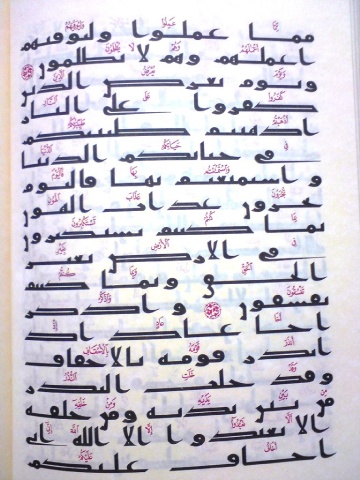 مما عملوا وليوفيهم
اعملهم وهم لا يظلمون
ويوم يعرض الذين
كفروا على النار
اذهبتم طيبتكم
في حياتكم الدنيا
واستمتعتم بها فاليوم
تجزون عذاب الهون
بما كنتم تستكبرون
في الارض بغير
الحق وبما كنتم
تفسقون واذكر
اخا عاد اذ
انذر قومه بالاحقاف
وقد خلت النذر
من بين يديه ومن خلفه
الا تعبدوا الا الله اني
اخاف عليكم